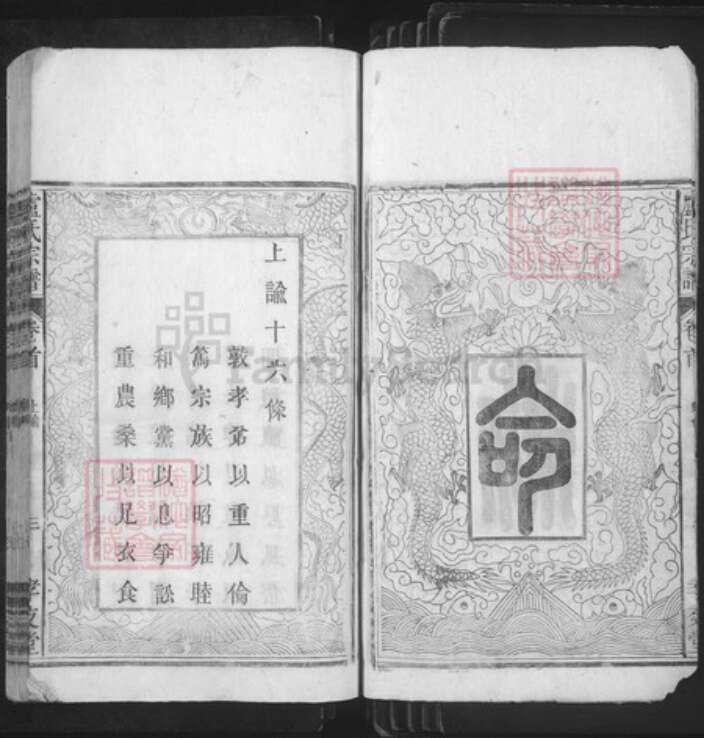 命
上諭十六條
敦孝弟以重人倫
篤宗族以昭雍睦
和鄉黨以息爭訟
重農桑以足衣食
氏宗譜
卷首
上諭
三
孝友堂
FamilySearch